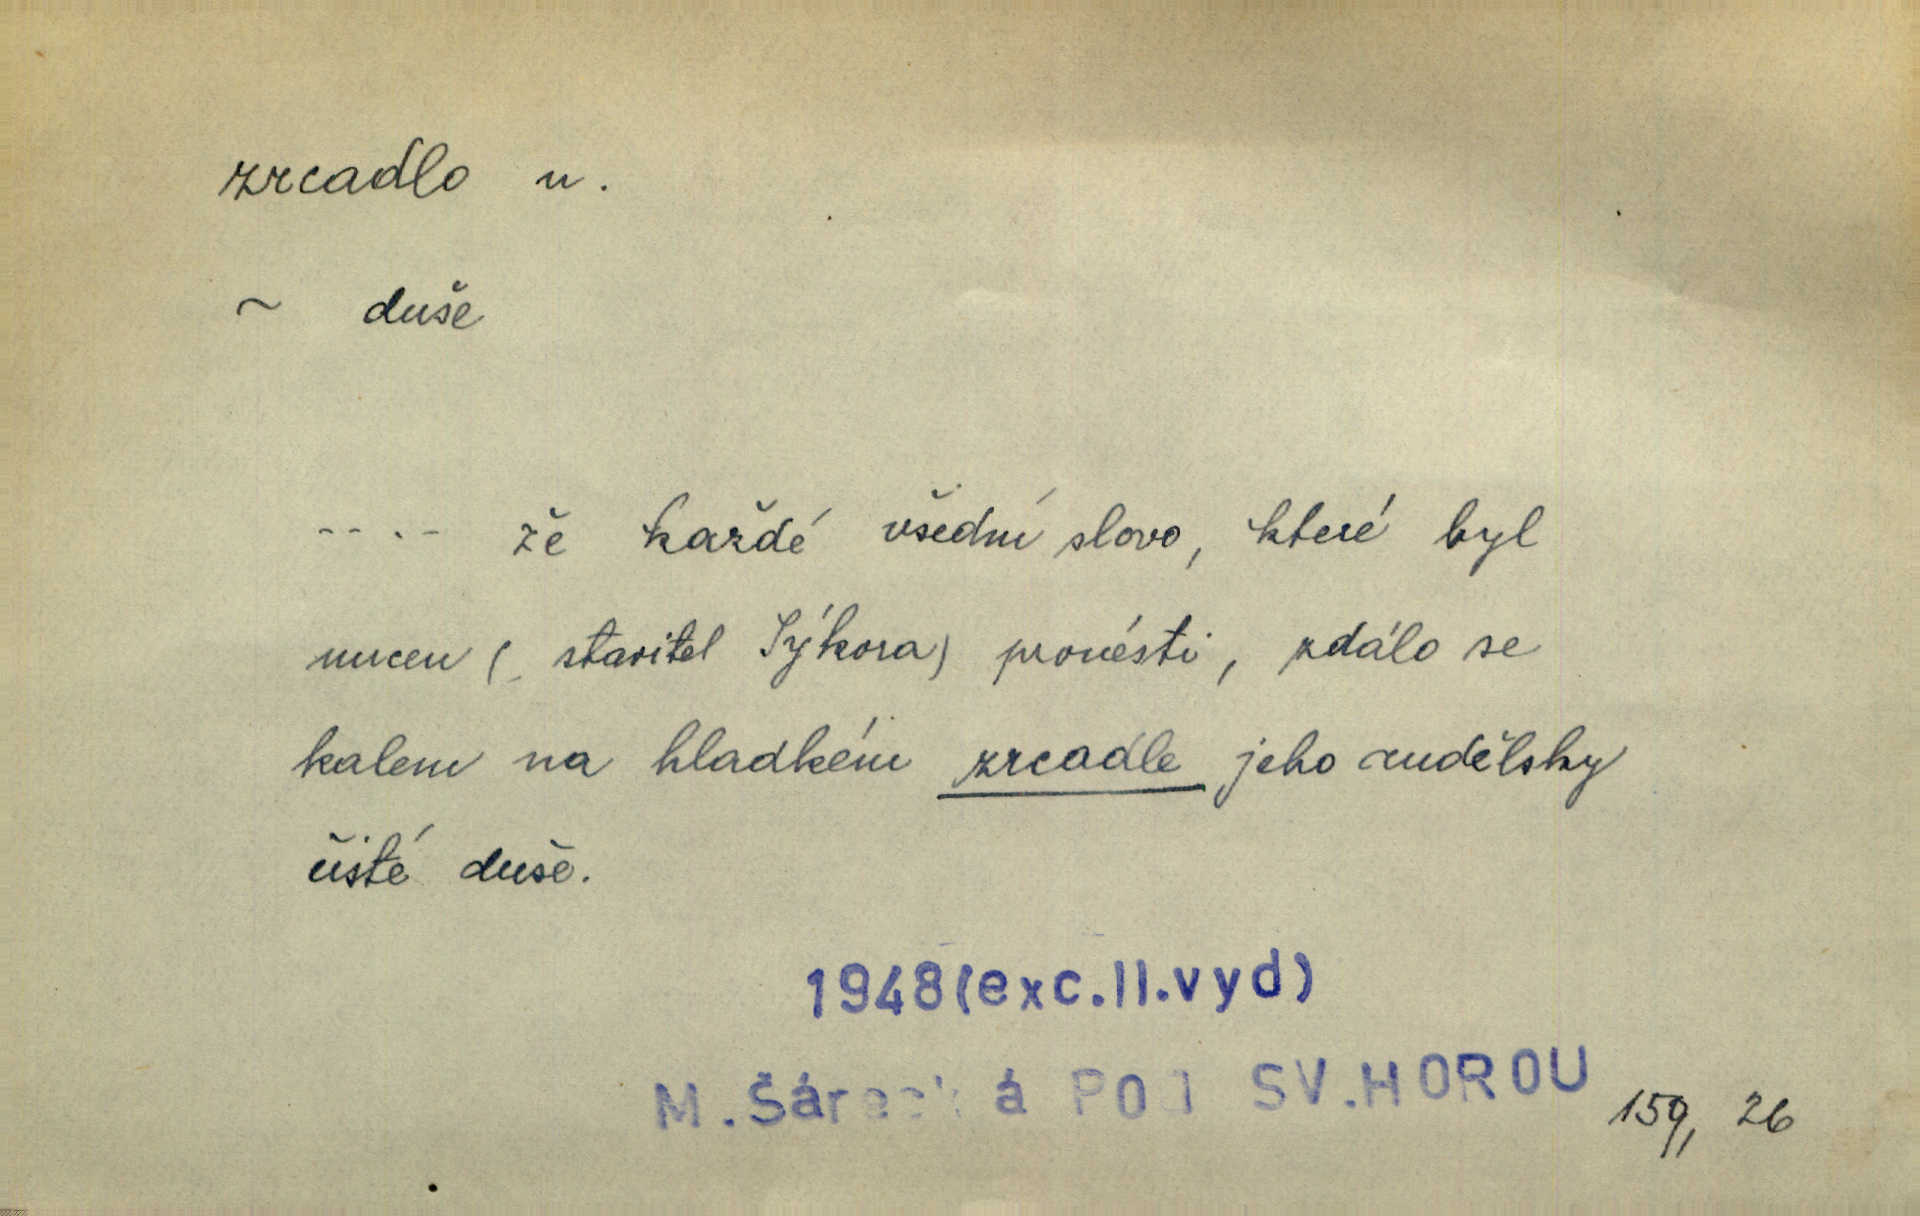 zrcadlo n.
~ duše
---- že každé všední slovo, které byl
nucen (stavitel Sýkora) pronésti, zdálo se
kalem na hladkém zrcadle jeho andělsky
čisté duše.
1948(exc.II.vyd)
M.Šárecká POD SV.HOROU
159, 26